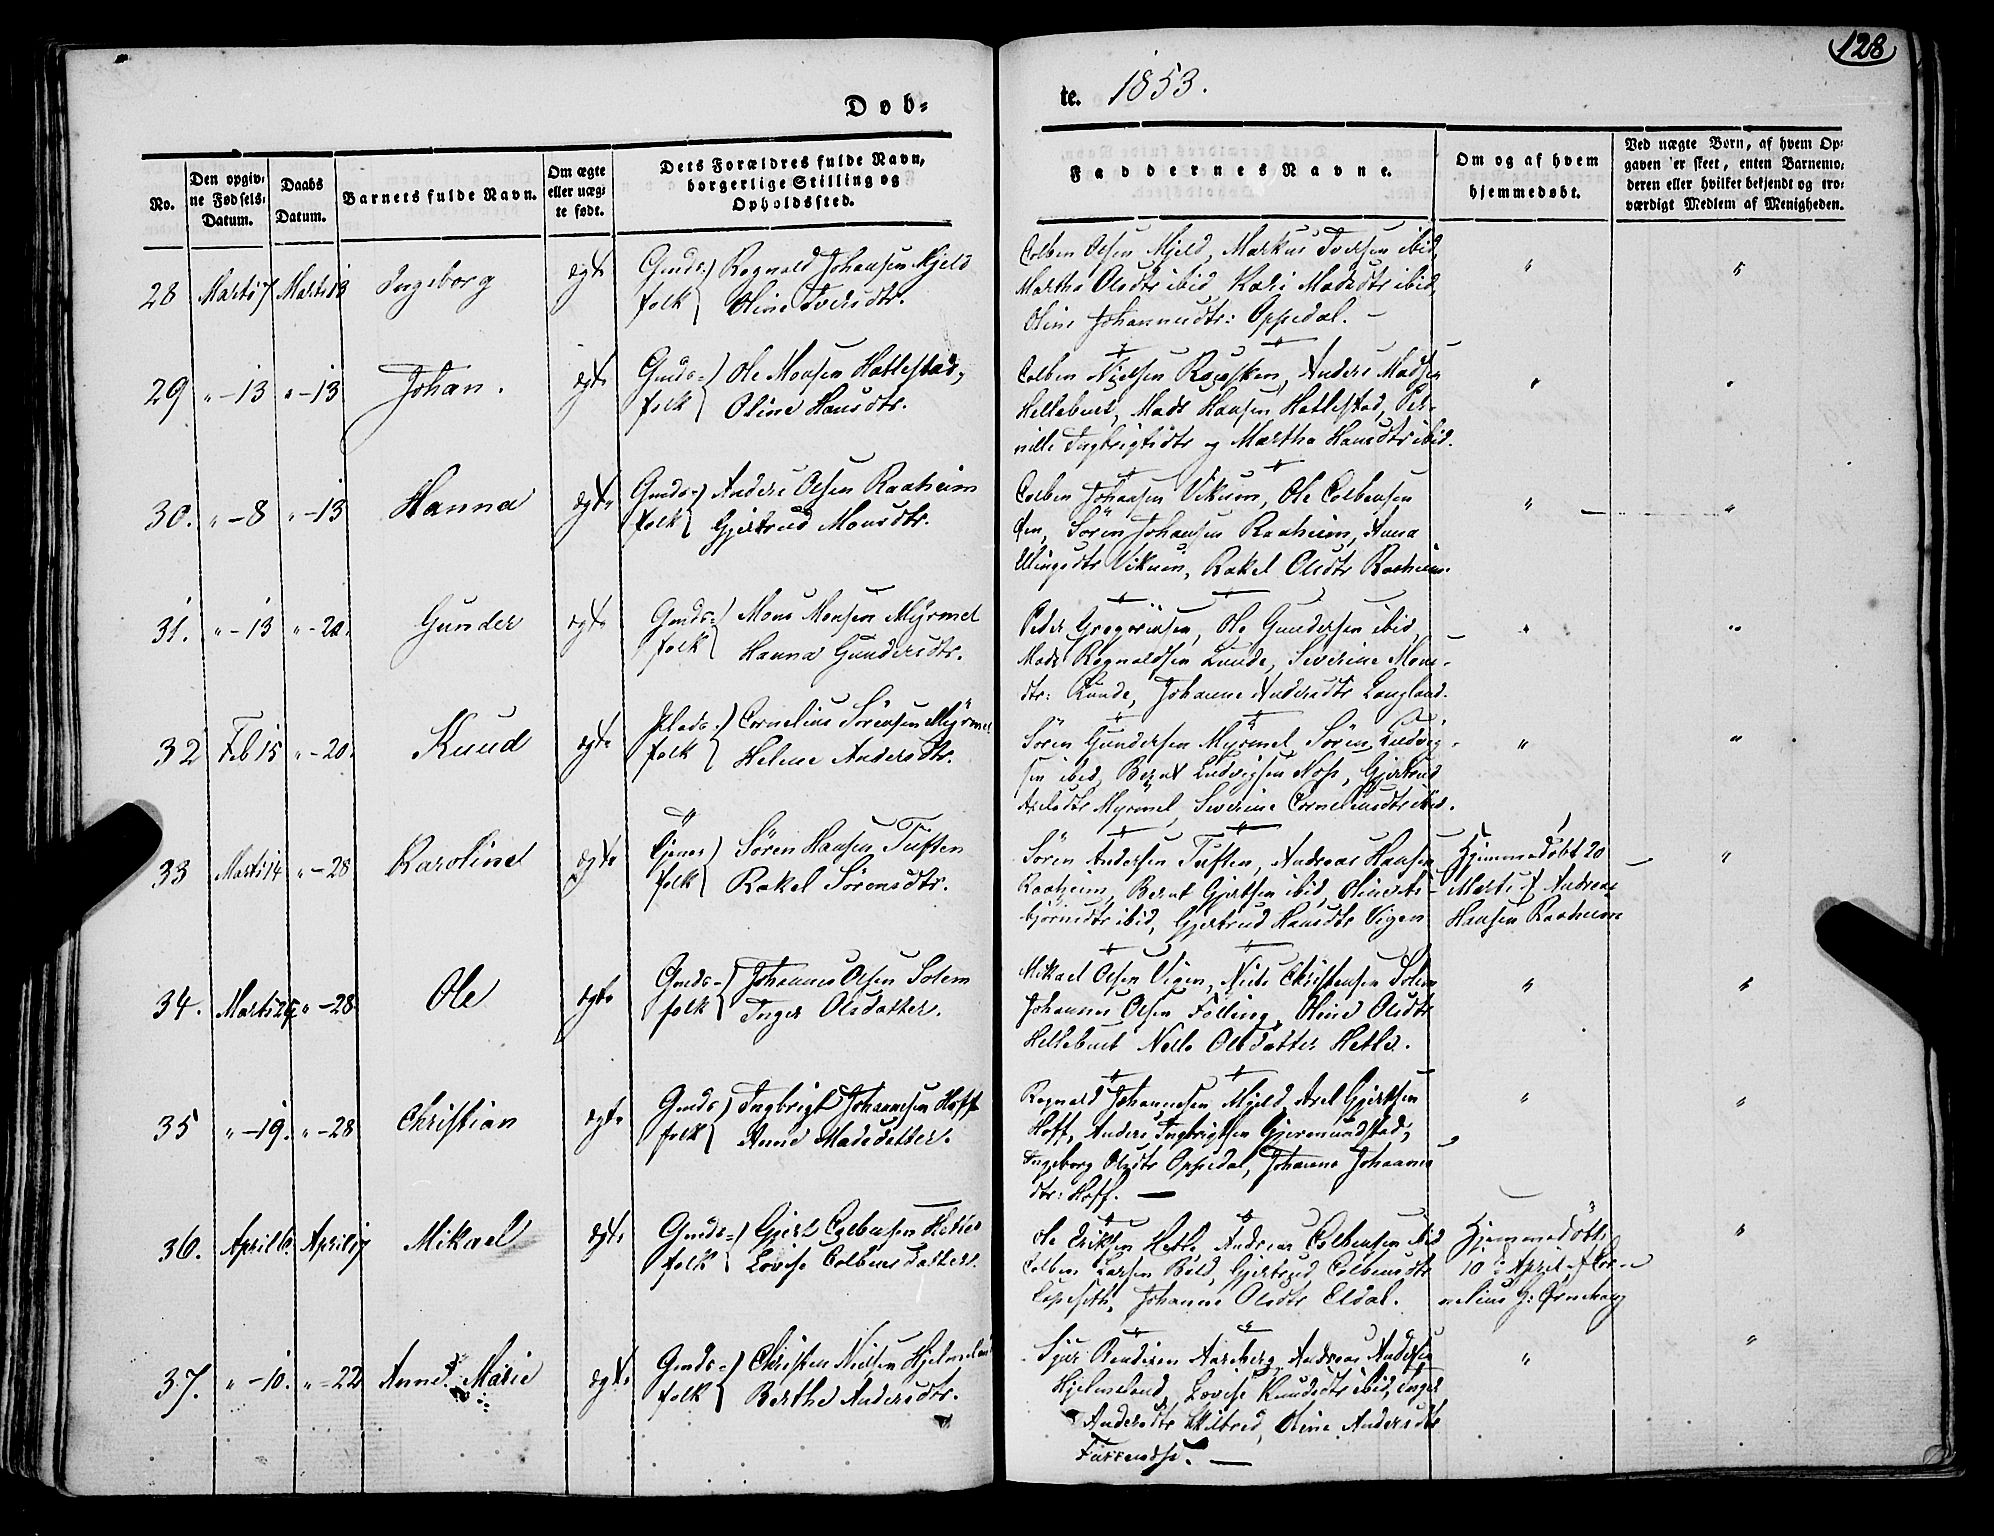 128
Døb-
te. 1853.
No.
Den opgiv-
ne Fødsels-
Datum.
Daabs
Datum.
Barnets fulde Navn.
Om ægte
eller uæg-
te født.
Dets Forældres fulde Navn,
borgerlige Stilling og
Opholdssted.
Faddernes Navne.
Om og af hvem
hjemmedøbt.
Ved uægte Børn, af hvem Op-
gaven er skeet, enten Barnemo-
deren eller hvilket bekjendt og tro-
værdigt Medlem af Menigheden.
28 Marts 7 Marts 13 Ingeborg ægte
Gmds-folk Rognald Johansen Mjeld
Oline Iversdtr.
Colben Olsen Mjeld, Markus Iversen ibid,
Martha Olsdtr ibid, Kari Madsdtr ibid,
Oline Johannesdtr: Oppedal. –
29 " – 13 " – 13 Johan. ægte
Gmds-folk Ole Monsen Hatlestad,
Oline Hansdtr.
Colben Nielsen, Anders Madsen
Hellebust, Mads Hansen Hatlestad, Per-
nille Ingbrigtsdtr og Martha Hansdtr ibid.
30. " – 8 " – 13 Hanna ægte
Gmds-folk Anders Olsen Raaheim
Gjertrud Monsdtr.
Colben Johansen Vikum, Ole Colbensen
Søren Johansen Raaheim, Anna
Vikum, Rakel Olsdtr Raaheim.
31. " – 13 " – 20. Gunder ægte
Gmds-folk Mons Monsen Myrmel
Hanna Gundersdtr.
Peder Gregoriusen, Ole Gundersen ibid,
Mads Rognaldsen Lunde, Severine Mons-
dtr: Lunde, Johanne Andersdtr Langland.
32 Feb 15 " – 20. Knud ægte
Plads-folk Cornelius Sørensen Myrmel
Helene Andersdtr.
Søren Gundersen Myrmel, Søren Ludvig-
sen ibid, Bernt Ludvigsen, Gjertrud
Myrmel, Severine Corneliusdtr ibid.
33 Marts 14 " – 28 Karoline ægte
folk Søren Hansen Tuften
Rakel Sørensdtr.
Søren Andersen Tuften, Andreas Hansen
Raaheim, Bernt Gjertsen ibid,
ibid, Gjertrud Hansdtr Vigen
Hjemmedøbt 20
Marts af Andreas
Hansen Raaheim
34. Marts " – 28 Ole ægte
Gmds-folk Johannes Olsen Solem
Inger Olsdatter.
Mikael Olsen Vigen, Christensen Solem
Johannes Olsen Følling, Oline Olsdtr
Hellebust Olsdatter Hetle.
35 " – 19. " – 28 Christian ægte
Gmds-folk Ingbrigt Johannesen Hoff
Anne Madsdatter.
Rognald Johannesen Mjeld, Axel Gjertsen
Hoff, Anders Ingbrigtsen,
Ingeborg Olsdtr Oppedal, Johanne Johannes-
dtr: Hoff. –
36. April 6. April 17 Mikael ægte
Gmds-folk Gjert Colbensen
Lovise Colbensdatter.
Ole Eriksen Hetle, Andreas Colbensen ibid
Colben Larsen, Gjertrud Colbensdtr
Johanne Olsdtr Eldal.
Hjemmedøbt
10de April af Cor-
nelius G:
37. " – 10. " – 22 Anne Marie ægte
Gmds-folk Christen Nielsen Hjelmeland
Berthe Andersdtr.
Sjur Andreas Andersen
Hjelmeland, Lovise Knudsdtr ibid, Inger
Andersdtr, Oline Andersdtr